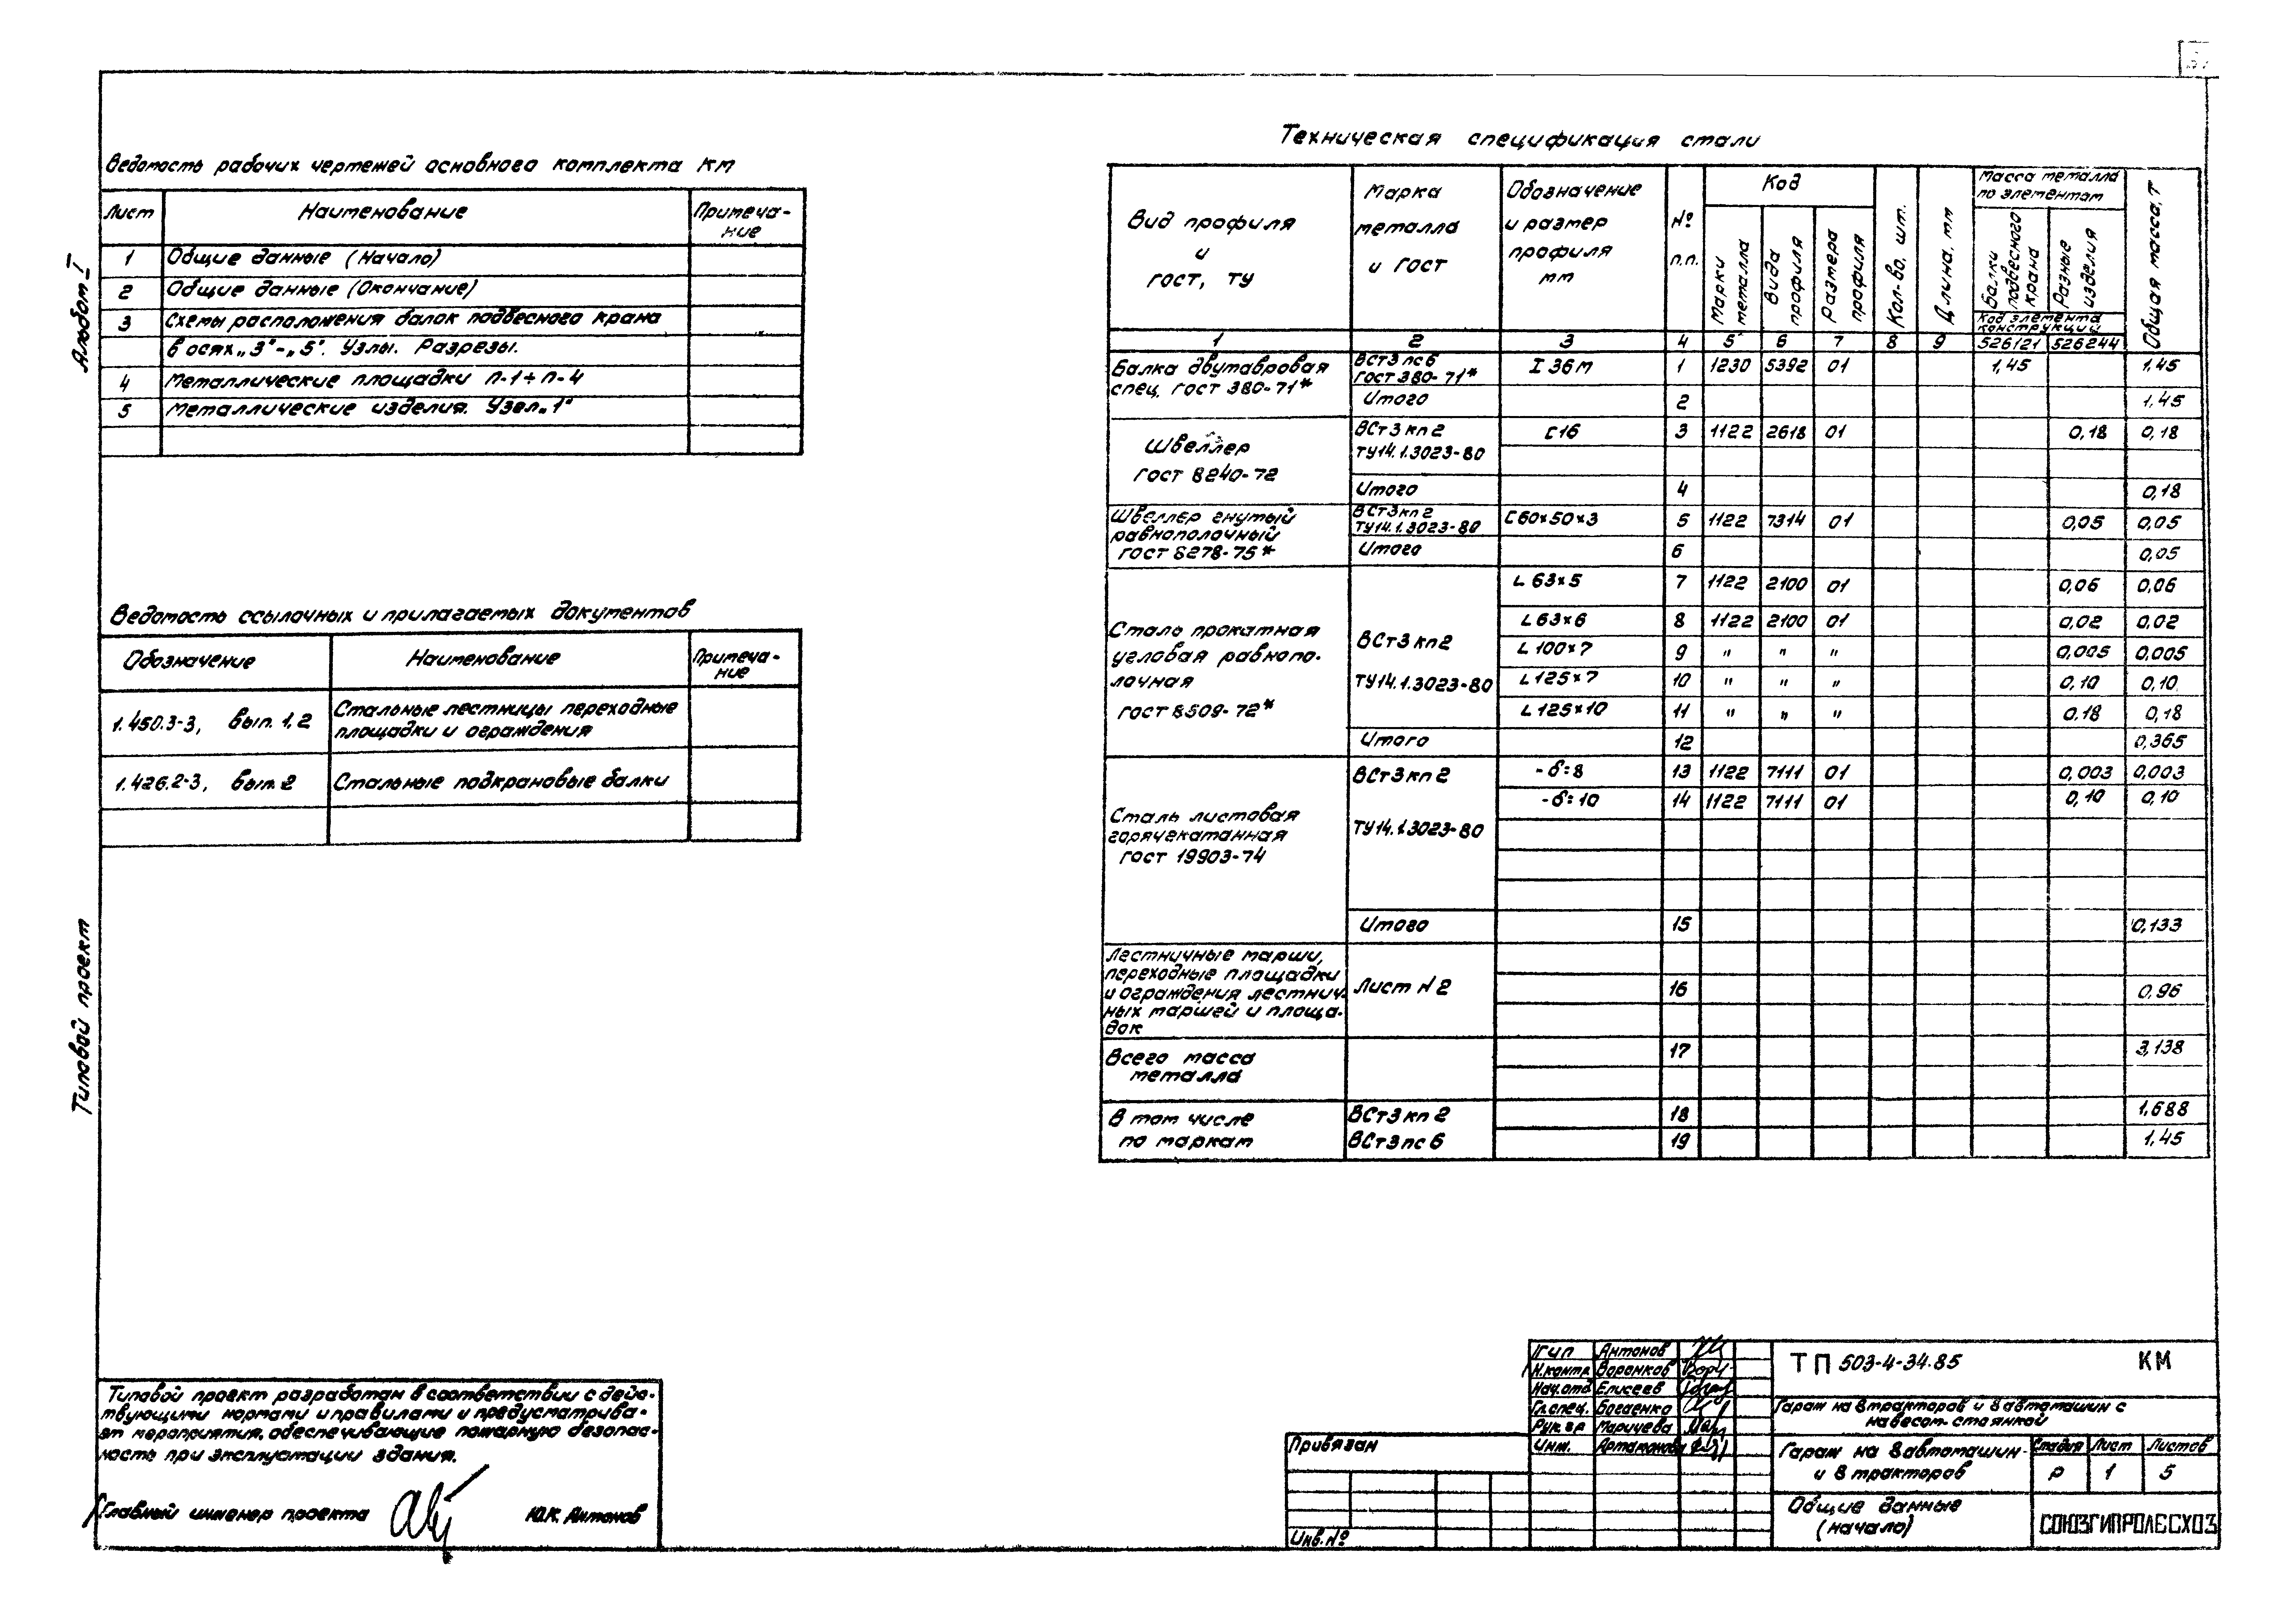 Альбом I
Типовой проект
Ведомость рабочих чертежей основного комплекта КМ
Лист Наименование Примеча-
ние
1 Общие данные (Начало)
2 Общие данные (Окончание)
3 Схемы расположения балок подвесного крана
в осях „3"-„5". Узлы. Разрезы.
4 Металлические площадки П-1÷П-4
5 Металлические изделия. Узел „1"
Ведомость ссылочных и прилагаемых документов
Обозначение Наименование Примеча-
ние
1.450.3-3, вып. 1,2 Стальные лестницы переходные
площадки и ограждения
1.426.2-3, вып. 2 Стальные подкрановые балки
Техническая спецификация стали
Вид профиля
и
ГОСТ, ТУ
Марка
металла
и ГОСТ
Обозначение
и размер
профиля
мм
№
п.п.
Код
Марки
металла
Вида
профиля
Размера
профиля
Кол-во, шт.
Длина, мм
Масса металла
по элементам
Балки
подвесного
крана
Разные
изделия
Код элемента
конструкций
Общая масса, т
1 2 3 4 5 6 7 8 9 526121 526244
Балка двутавровая
спец. ГОСТ 380-71*
ВСт3пс6
ГОСТ 380-71*
I 36М 1 1230 5392 01 1,45 1,45
Итого 2 1,45
Швеллер
ГОСТ 8240-72
ВСт3кп2
ТУ14.1.3023-80
С16 3 1122 2618 01 0,18 0,18
Итого 4 0,18
Швеллер гнутый
равнополочный
ГОСТ 8278-75*
ВСт3кп2
ТУ14.1.3023-80
С60×50×3 5 1122 7314 01 0,05 0,05
Итого 6 0,05
Сталь прокатная
угловая равнопо-
лочная
ГОСТ 8509-72*
ВСт3кп2
ТУ14.1.3023-80
L 63×5 7 1122 2100 01 0,06 0,06
L 63×6 8 1122 2100 01 0,02 0,02
L 100×7 9 " " " 0,005 0,005
L 125×7 10 " " " 0,10 0,10
L 125×10 11 " " " 0,18 0,18
Итого 12 0,365
Сталь листовая
горячекатанная
ГОСТ 19903-74
ВСт3кп2
ТУ14.1.3023-80
-δ=8 13 1122 7111 01 0,003 0,003
-δ=10 14 1122 7111 01 0,10 0,10
Итого 15 0,133
Лестничные марши,
переходные площадки
и ограждения лестнич-
ных маршей и площа-
док
Лист N2 16 0,96
Всего масса
металла
17 3,138
В том числе
по маркам
ВСт3кп2 18 1,688
ВСт3пс6 19 1,45
Типовой проект разработан в соответствии с дейс-
твующими нормами и правилами и предусматрива-
ет мероприятия, обеспечивающие пожарную безопас-
ность при эксплуатации здания.
Главный инженер проекта Ю.К. Антонов
Привязан
Инв. №
ГИП Антонов
Н.контр. Воронков
Нач.отд. Елисеев
Гл.спец. Богаенко
Рук.гр Маричева
Инж. Артамонова
ТП 503-4-34.85 КМ
Гараж на 8 тракторов и 8 автомашин с
навесом-стоянкой
Гараж на 8 автомашин
и 8 тракторов
Стадия Лист Листов
Р 1 5
Общие данные
(начало)
СОЮЗГИПРОЛЕСХОЗ